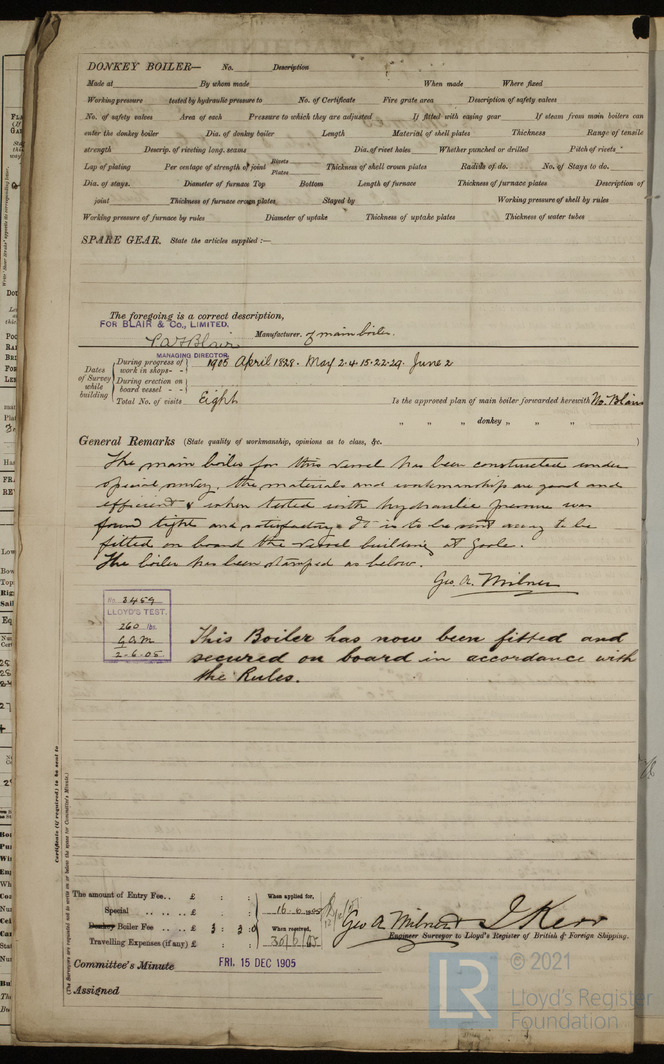 DONKEY BOILER— No. Description
Made at By whom made When made Where fixed
Working pressure tested by hydraulic pressure to No. of Certificate Fire grate area Description of safety valves
No. of safety valves Area of each Pressure to which they are adjusted If fitted with easing gear If steam from main boilers can
enter the donkey boiler Dia. of donkey boiler Length Material of shell plates Thickness Range of tensile
strength Descrip. of riveting long. seams Dia. of rivet holes Whether punched or drilled Pitch of rivets
Lap of plating Per centage of strength of joint Rivets Plates Thickness of shell crown plates Radius of do. No. of Stays to do.
Dia. of stays. Diameter of furnace Top Bottom Length of furnace Thickness of furnace plates Description of
joint Thickness of furnace crown plates Stayed by Working pressure of shell by rules
Working pressure of furnace by rules Diameter of uptake Thickness of uptake plates Thickness of water tubes
SPARE GEAR. State the articles supplied :—
The foregoing is a correct description,
FOR BLAIR & Co., LIMITED.
Blair Manufacturer. of main boiler.
MANAGING DIRECTOR
Dates of Survey while building
During progress of work in shops- - 1905 April 18.28. May 2.4.15.22.29. June 2
During erection on board vessel - -
Total No. of visits Eight Is the approved plan of main boiler forwarded herewith No. Blair
" " donkey " " "
General Remarks (State quality of workmanship, opinions as to class, &c. )
The main boiler for this vessel has been constructed under
special survey, the materials and workmanship are good and
efficient & when tested with hydraulic pressure was
found tight and satisfactory. It is to be sent away to be
fitted on board the vessel building at Goole.
The boiler has been stamped as below.
Geo. A. Milner
No. 3459
LLOYD'S TEST.
260 lbs.
G.A.M
2-6-05
This Boiler has now been fitted and
secured on board in accordance with
the Rules.
Certificate (if required) to be sent to
(The Surveyors are requested not to write on or below the space for Committee's Minute.)
The amount of Entry Fee.. £ : : When applied for,
Special .. .. .. £ : : 16.6.1905
Donkey Boiler Fee ... £ 3 : 3 : 0 When received,
Travelling Expenses (if any) £ : : 30/6/05
Geo A Milner & J Kerr
Engineer Surveyor to Lloyd's Register of British & Foreign Shipping.
Committee's Minute FRI. 15 DEC 1905
Assigned
LR © 2021
Lloyd's Register
Foundation